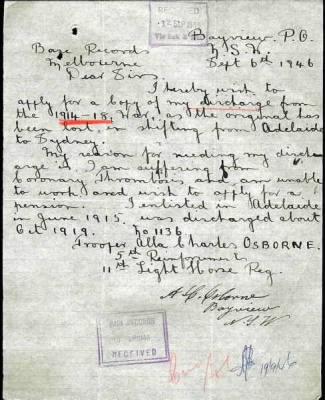 RECEIVED
Bayview, P.O.
N.S.W.
Sept 6th 1946
Base Records
Melbourne
Dear Sirs,
I hereby wish to
apply for a copy of my discharge from
the 1914-18, War, as the original has
been lost, in shifting from Adelaide
to Sydney.
My reason for needing my disch-
arge is I am suffering from
Coronary Thrombosis and am unable
to work and wish to apply for a
pension. I enlisted in Adelaide
in June 1915. was discharged about
Oct 1919. No 1136
Trooper Alla Charles OSBORNE.
5th Reinforcement
11th Light Horse Reg.
A. C. Osborne
Bayview
N.S.W
BASE RECORDS
RECEIVED